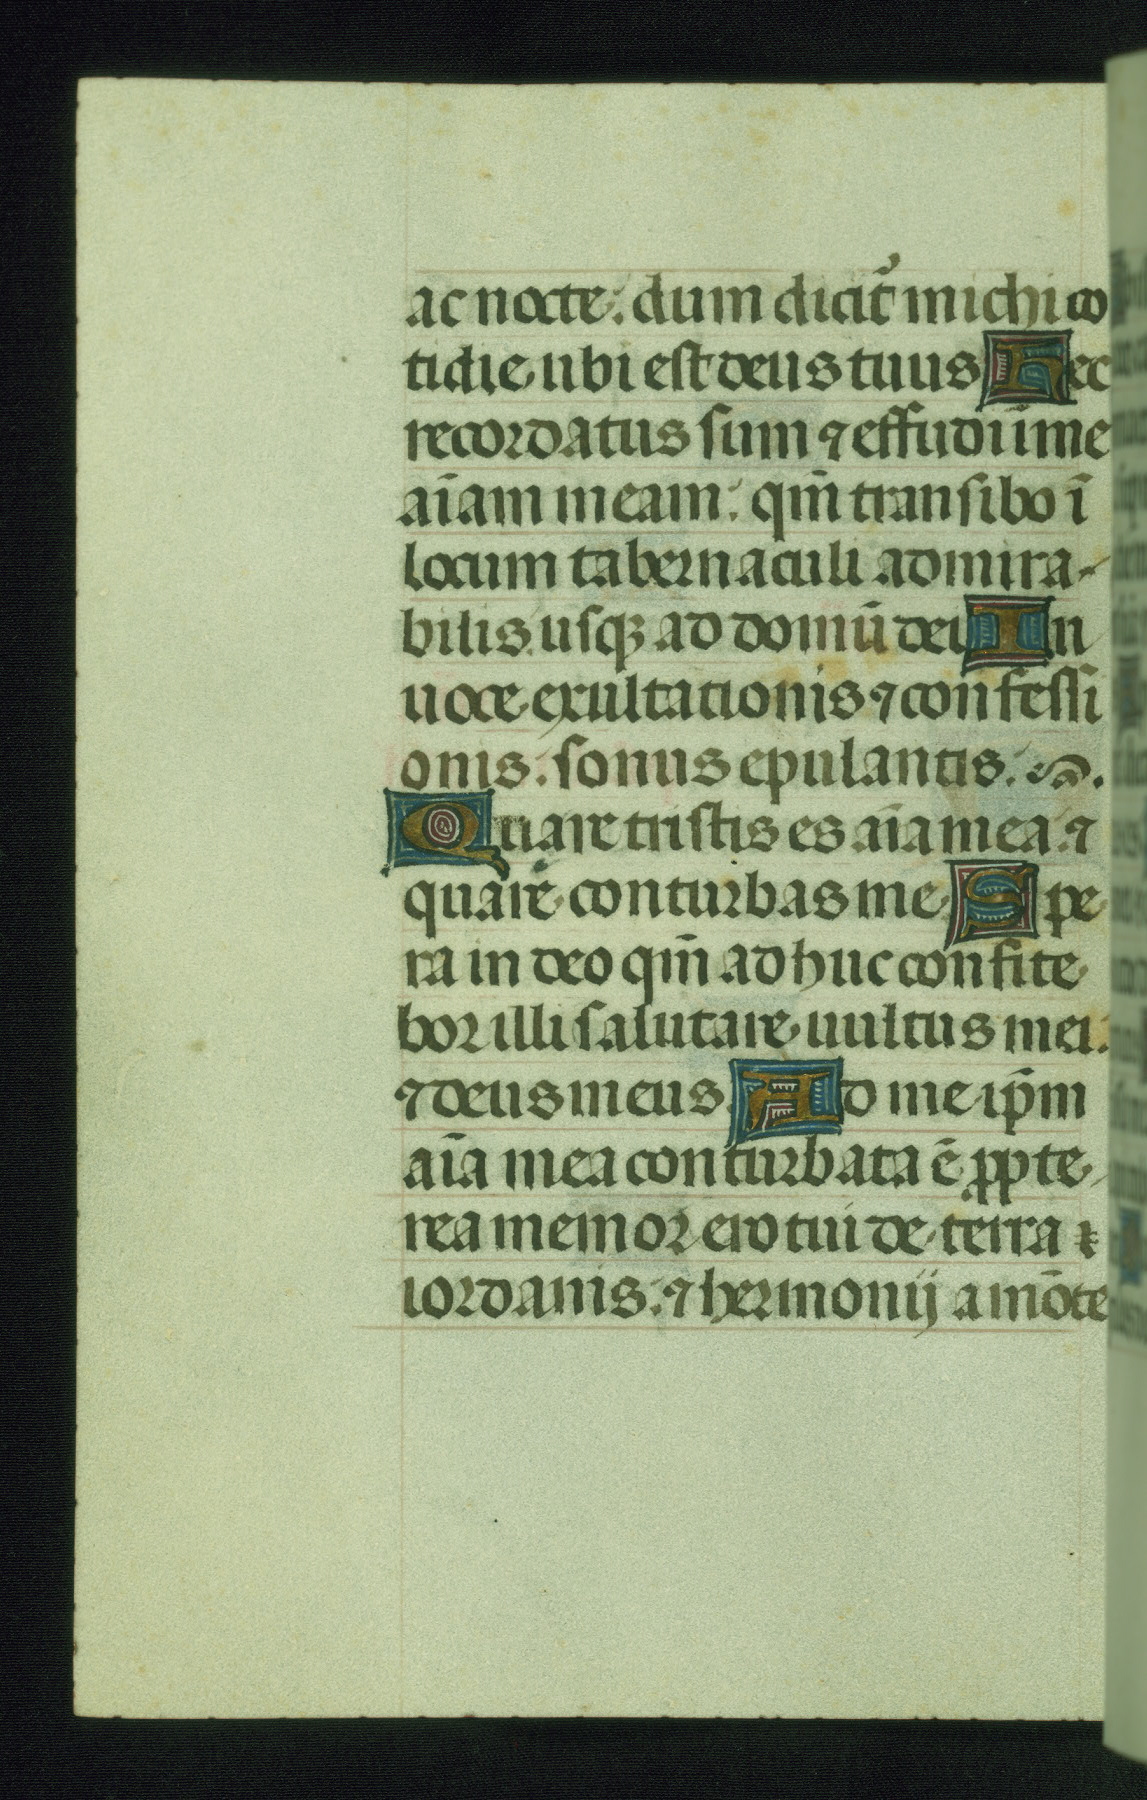 ac nocte: dum dicit᷑ michi co
tidie ubi est deus tuus Hec
recordatus sum ⁊ effudi ī me
aīam meam: qm̄ transibo ī
locum tabernaculi admira-
bilis. usq̨ ad domū dei In
uoce exultationis ⁊ confessi
onis: sonus epulantis.
Quare tristis es aīa mea ⁊
quare conturbas me Spe
ra in deo qm̄ adhuc confite
bor illi salutare uultus mei:
⁊ deus meus. Ad me ip̄m
aīa mea conturbata ē ꝓpte
rea memor ero tui de terra
iordanis: ⁊ hermonij a mōte